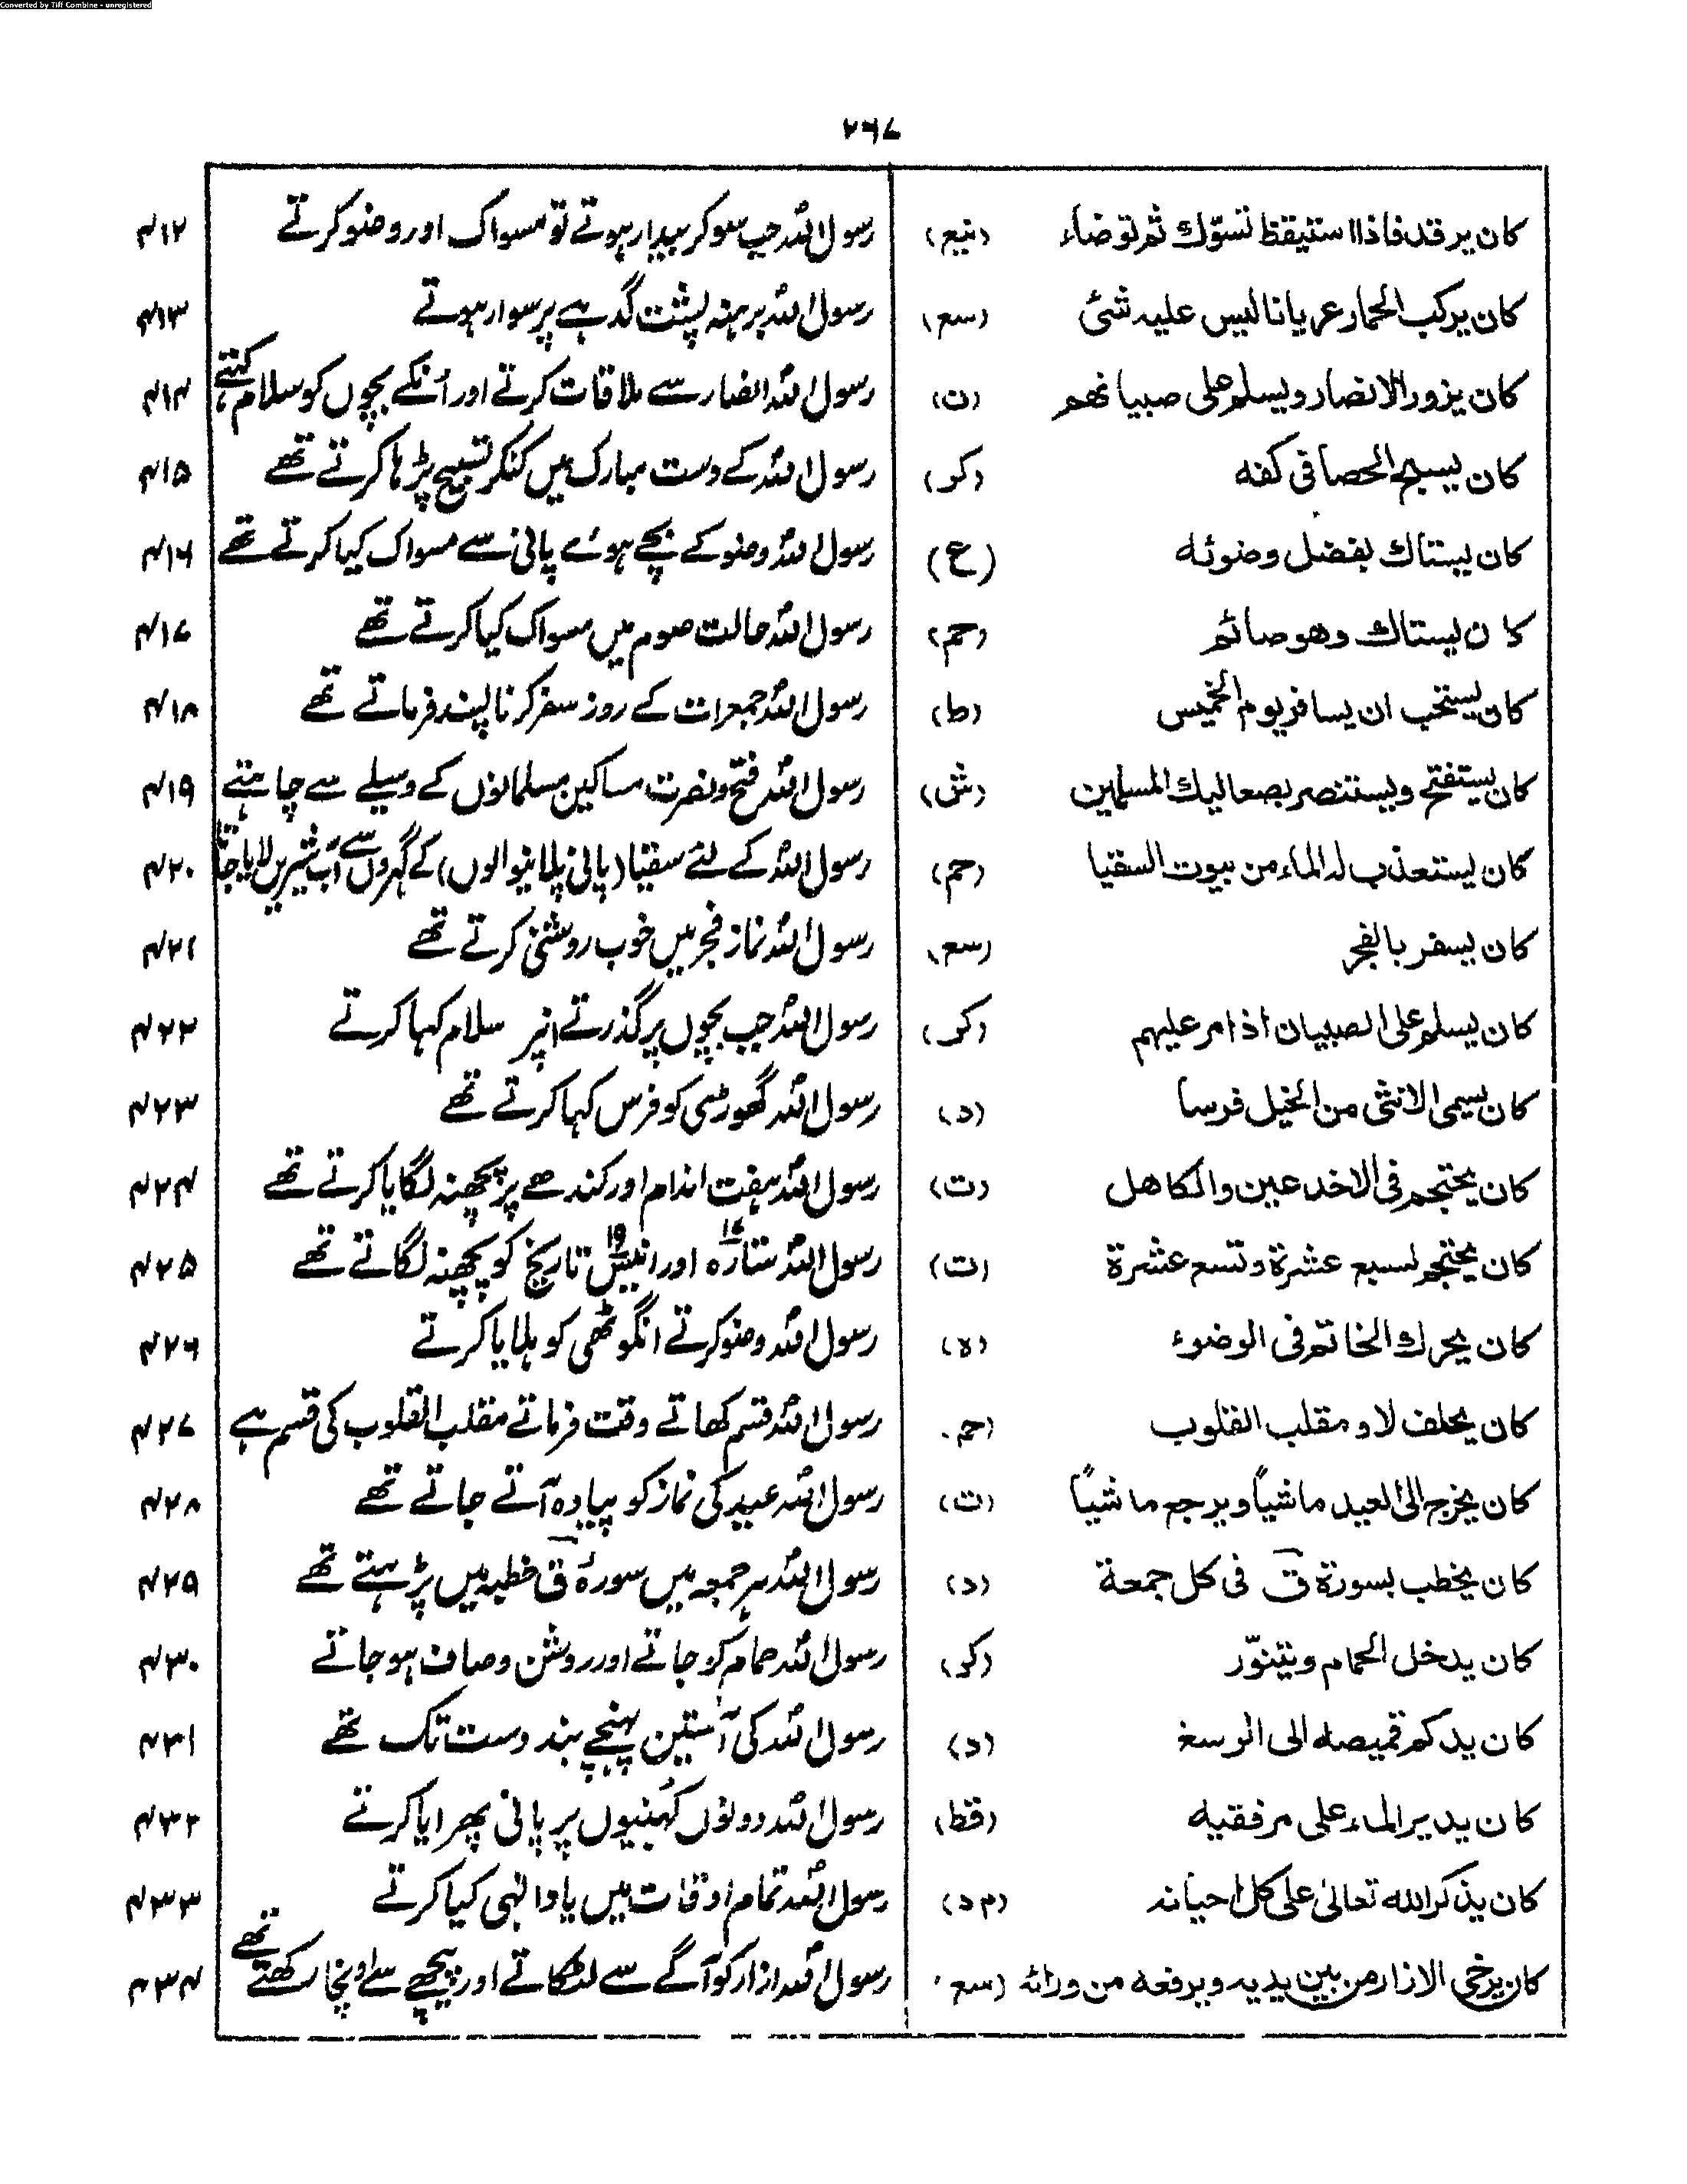 Converted by Tiff Combine - unregistered
۲۶۷
کان یرقد فاذا استیقظ تسوّك ثم توضاء (نیع) رسول اللہ جب سو کر بیدار ہوتے تو مسواک اور وضو کرتے ۴۱۲
کان یرکب الحمار عریانا لیس علیہ شئ (سع) رسول اللہ برہنہ پشت گدہے پر سوار ہوتے ۴۱۳
کان یزور الانصار ویسلم علی صبیانهم (ن) رسول اللہ انصار سے ملاقات کرتے اور اُنکے بچوں کو سلام کہتے ۴۱۴
کان یسبح الحصا فی کفه (کر) رسول اللہ کے دست مبارک میں کنکر تسبیح پڑہا کرتے تھے ۴۱۵
کان یستاك بفضل وضوئه (ع) رسول اللہ وضو کے بچے ہوئے پانی سے مسواک کیا کرتے تھے ۴۱۶
کان یستاك وهو صائم (حم) رسول اللہ حالت صوم میں مسواک کیا کرتے تھے ۴۱۷
کان یستحب ان یسافر یوم الخمیس (ط) رسول اللہ جمعرات کے روز سفر کرنا پسند فرماتے تھے ۴۱۸
کان یستفتح ویستنصر بصعالیك المسلمین (ش) رسول اللہ فتح و نصرت مساکین مسلمانوں کے وسیلے سے چاہتے ۴۱۹
کان یستعذب له الماء من بیوت السقیا (حم) رسول اللہ کے لئے سقیا (پانی پلانیوالوں) کے گہروں سے آب شیریں لایا جاتا ۴۲۰
کان یسفر بالفجر (سع) رسول اللہ نماز فجر میں خوب روشنی کرتے تھے ۴۲۱
کان یسلم علی الصبیان اذا مر علیہم (کر) رسول اللہ جب بچوں پر گذرتے انپر سلام کہا کرتے ۴۲۲
کان یسمی الانثی من الخیل فرسا (د) رسول اللہ گھوڑی کو فرس کہا کرتے تھے ۴۲۳
کان یحتجم فی الاخدعین والکاهل (ت) رسول اللہ ہفت اندام اور کندھے پر پچھنہ لگایا کرتے تھے ۴۲۴
کان یحتجم لسبع عشرة وتسع عشرة (ت) رسول اللہ ستارہ ۱۷ اور انیس ۱۹ تاریخ کو پچھنہ لگاتے تھے ۴۲۵
کان یحرك الخاتم فی الوضوء (ہ) رسول اللہ وضو کرتے انگوٹھی کو ہلایا کرتے ۴۲۶
کان یحلف لا و مقلب القلوب (حم) رسول اللہ قسم کھاتے وقت فرماتے مقلب القلوب کی قسم ہے ۴۲۷
کان یخرج الی العید ماشیاً ویرجع ماشیاً (ت) رسول اللہ عید کی نماز کو پیادہ آتے جاتے تھے ۴۲۸
کان یخطب بسورة قٓ فی کل جمعة (د) رسول اللہ ہر جمعہ میں سورۂ قٓ خطبہ میں پڑہتے تھے ۴۲۹
کان یدخل الحمام ویتنوّر (کر) رسول اللہ حمام کو جاتے اور روشن و صاف ہو جاتے ۴۳۰
کان ید کم قمیصه الی الرسغ (د) رسول اللہ کی آستین پہنچے بند دست تک تھے ۴۳۱
کان یدیر الماء علی مرفقیه (قط) رسول اللہ دونوں کُہنیوں پر پانی پھرایا کرتے ۴۳۲
کان یذکر الله تعالیٰ علی کل احیانه (م د) رسول اللہ تمام اوقات میں یاد الٰہی کیا کرتے ۴۳۳
کان یرخی الازار من بین یدیه ویرفعه من ورائه (سع) رسول اللہ ازار کو آگے سے لٹکاتے اور پیچھے سے اونچا رکھتے تھے ۴۳۴